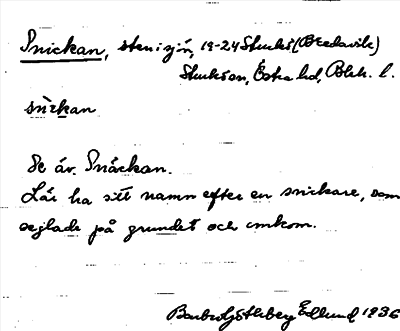 Snickan, sten i sjön, 19-24 Sturkö (Bredavik)
Sturkö sn, Östra hd, Blek. l.
snikan
Se äv. Snäckan.
Lär ha sitt namn efter en snickare, som
seglade på grundet och omkom.
Barbro Göthberg Edlund 1936